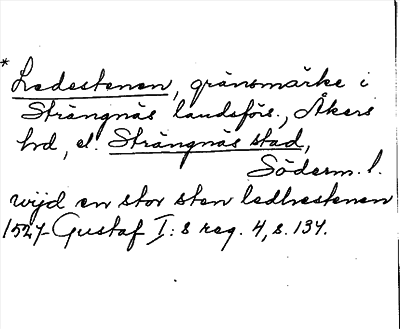 * Ledestenen, gränsmärke i
Strängnäs landsförs., Åkers
hd, el. Strängnäs stad,
Söderm. l.
wijd en stor sten ledhestenen
1527 Gustaf I:s reg. 4, s. 134.